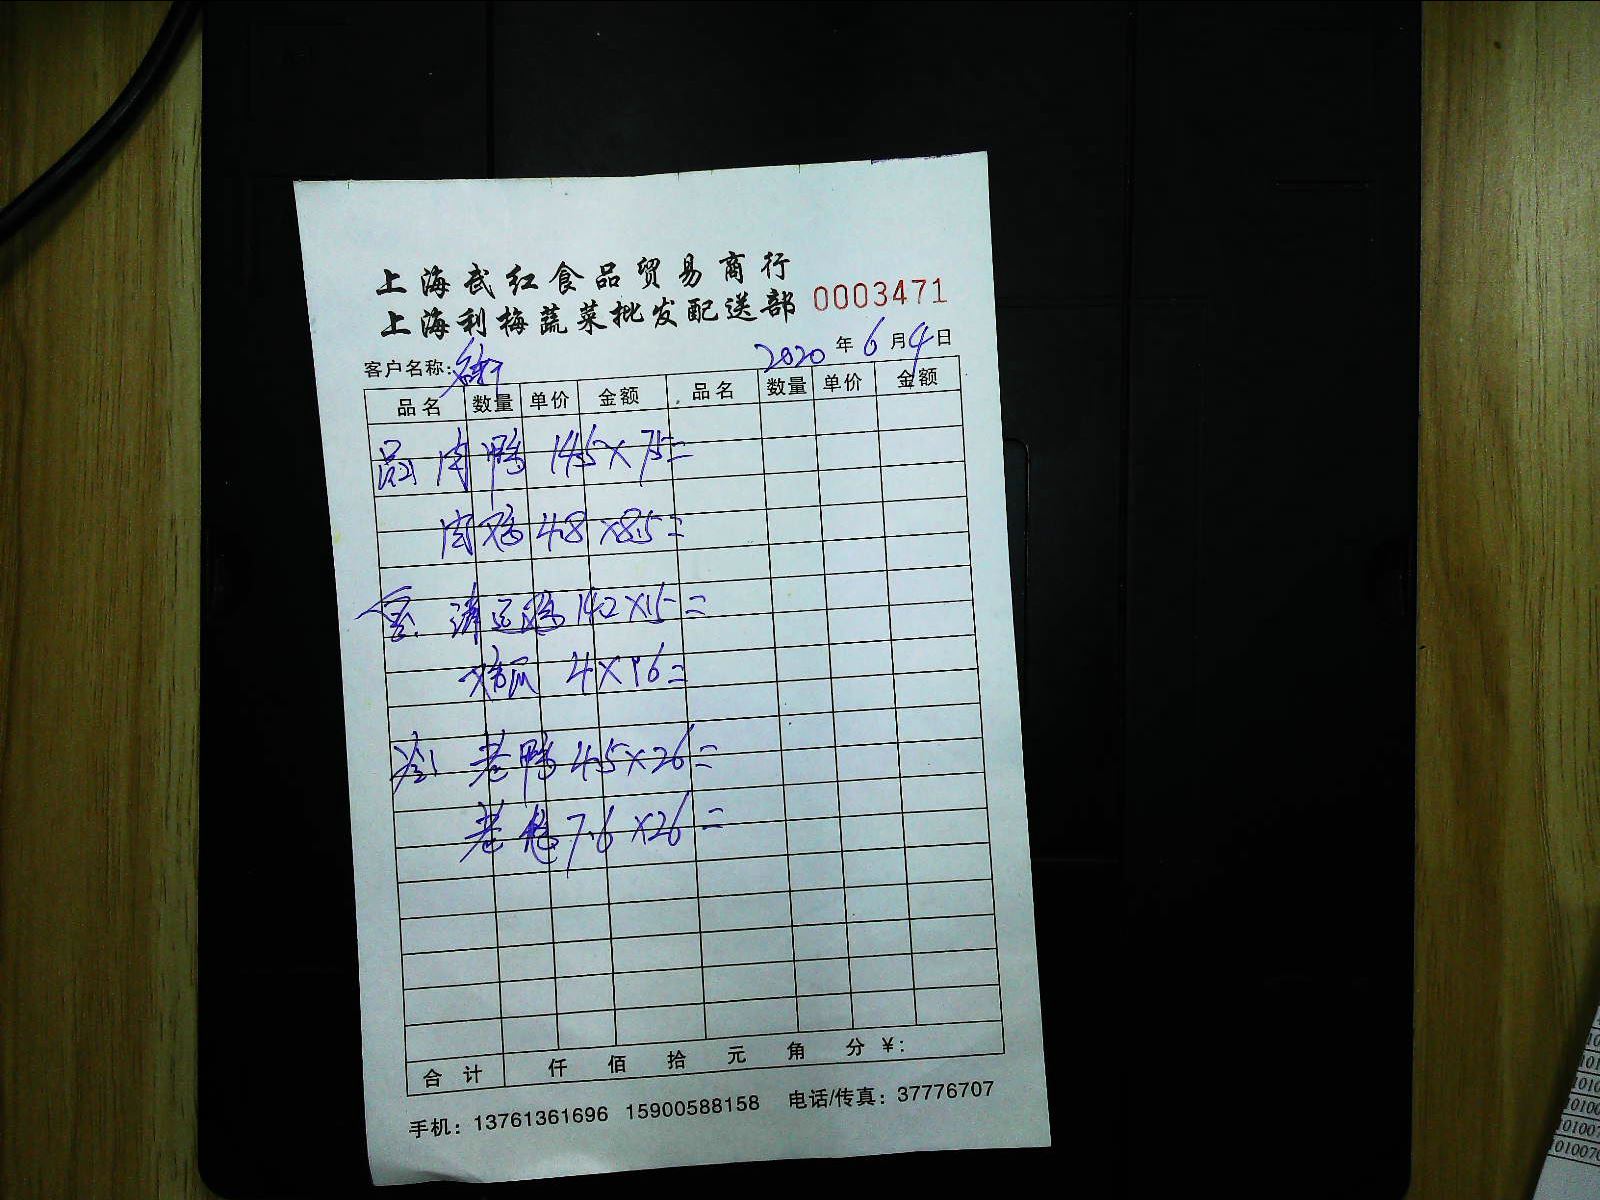 上海武红食品贸易商行
上海利梅蔬菜批发配送部 0003471
客户名称: 2020年6月4日
品名 数量 单价 金额 品名 数量 单价 金额
肉鸭 14.5×7.5=
肉鸡 4.8×8.5=
清远鸡 14.2×15=
4×16=
老鸭 4.5×26=
老 7.6×26=
合计 仟 佰 拾 元 角 分 ¥:
手机：13761361696 15900588158 电话/传真：37776707